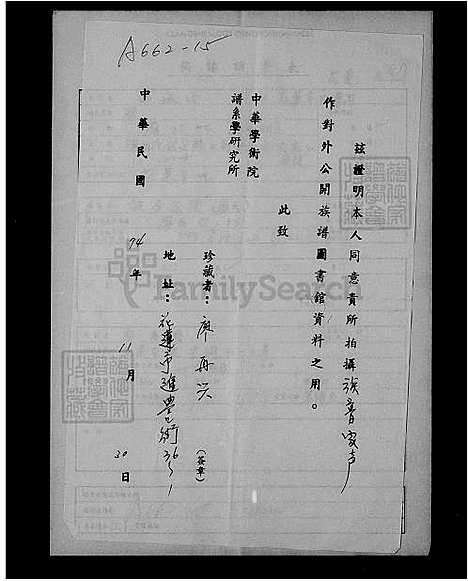 A662-15
茲證明本人同意貴所拍攝族音寞声
作對外公開族譜圖書館資料之用。
此致
中華學術院
譜系學研究所
珍藏者：廖再兴(簽章)
地址：花蓮市進豊街36~1
中華民國74年11月20日
FamilySearch